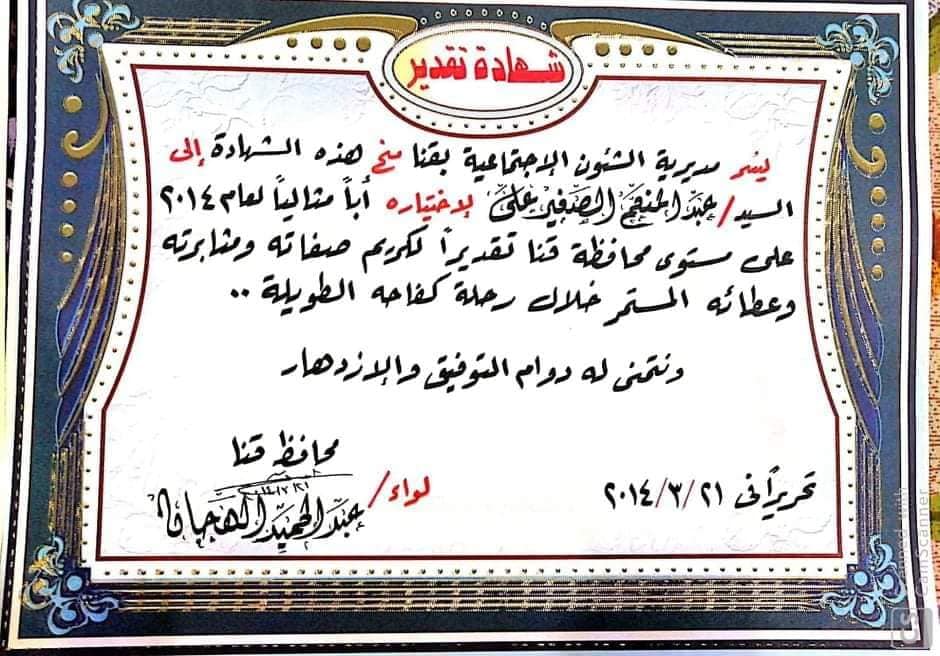 شهادة تقدير
يسر مديرية الشئون الإجتماعية بقنا منح هذه الشهادة إلى
السيد/ عبد المنعم الصغير على لإختياره أباً مثالياً لعام ٢٠١٤
على مستوى محافظة قنا تقديراً لكريم صفاته ومثابرته
وعطائه المستمر خلال رحلة كفاحه الطويلة ..
ونتمنى له دوام التوفيق والإزدهار
محافظ قنا
تحريراً فى ٢٠١٤/٣/٢١
لواء/ عبد الحميد الهجان
Scanned with
CamScanner
CS